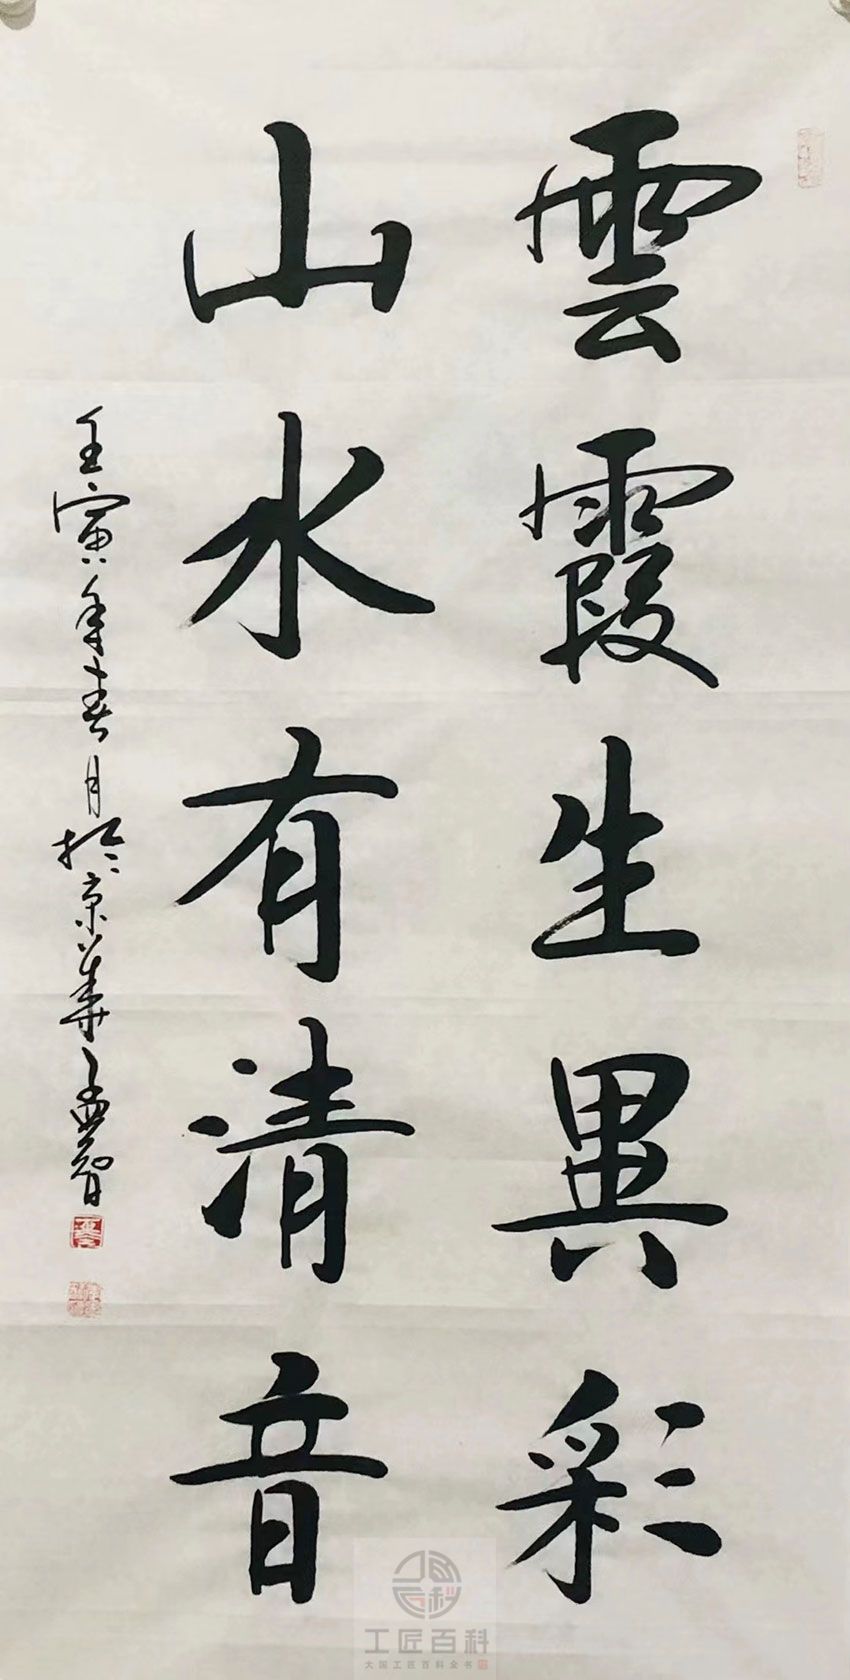 雲霞生異彩
山水有清音
壬寅年春月於京華孟智
工匠百科
大国工匠百科全书